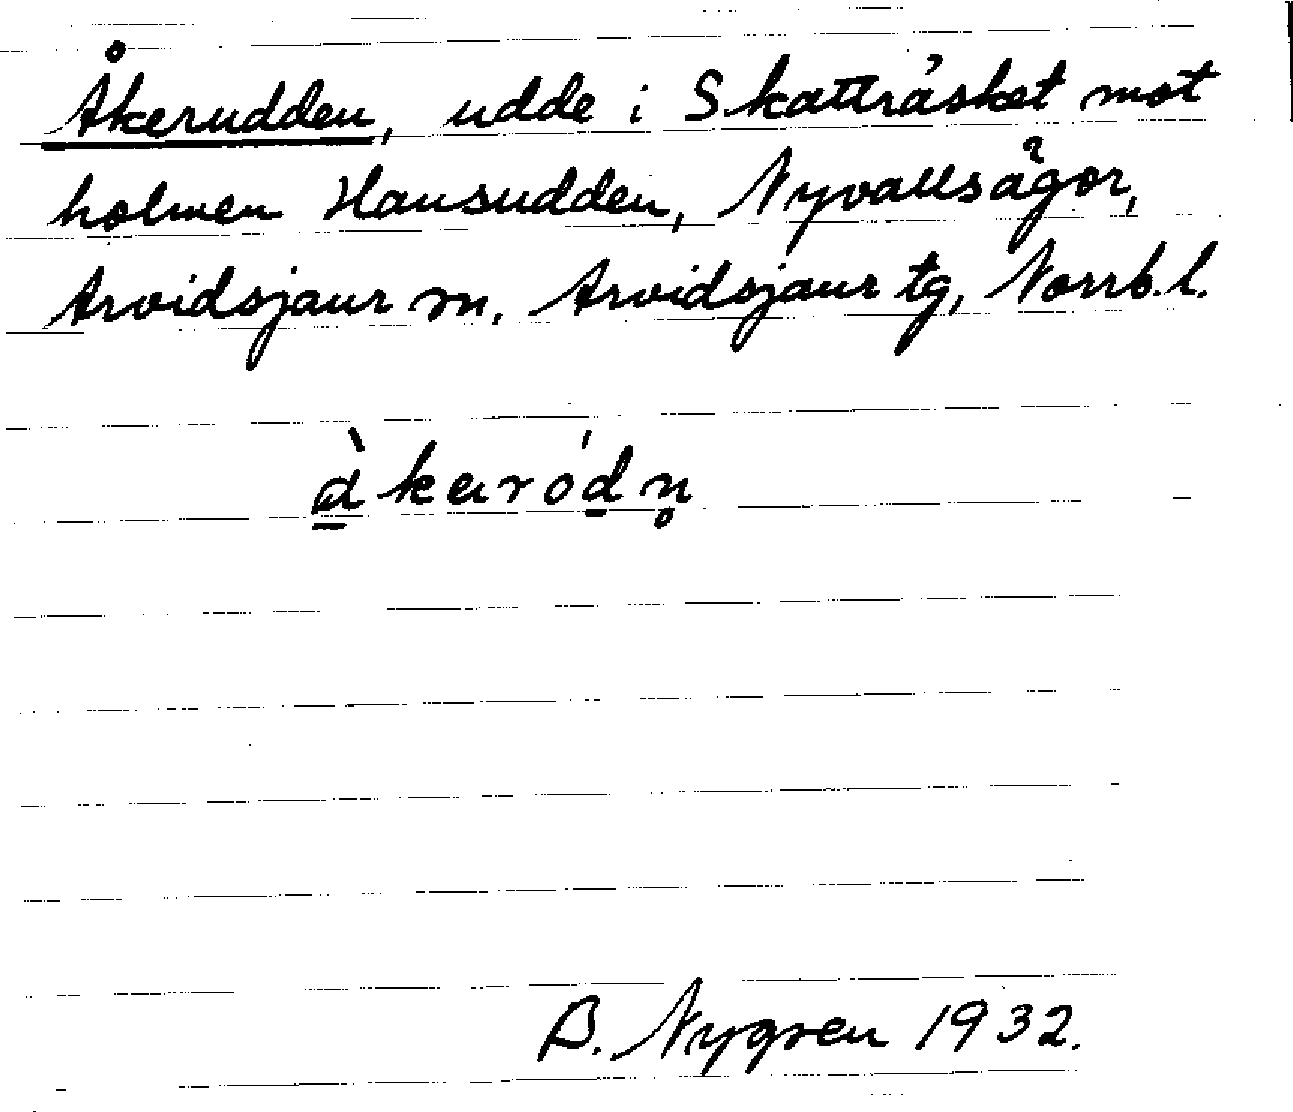 Åkerudden, udde i Skatträsket mot
holmen Hansudden, Nyvallsägor,
Arvidsjaur sn. Arvidsjaur tg, Norrb.l.
å̱̀keródn̥
B. Nygren 1932.